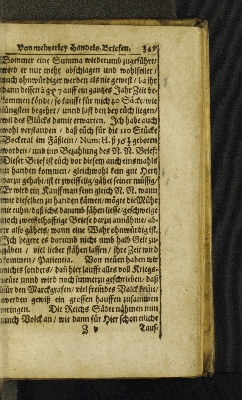 Von mehrerley Handels-Briefen. 349
Sommer eine Summa wiederumb zugeführet/
wird er nur mehr abschlagen und wohlfeiler/
auch ohnwürdiger werden als nie gewest/ da ihr
dann dessen à 95 7 auff ein gantzes Jahr Zeit be-
kommen könde/ so kauffe für mich 40 Säcke/ wie
längsten begehrt/ und laß den bey euch liegen/
wil des Glücks damit erwarten. Ich habe auch
wohl verstanden/ daß euch für die 110 Stücke
Bockeral im Fäßlein/ Num: H. ß 103 geboten
worden/ und um Bezahlung des N. N. Brieff.
Dieser Brieff ist euch vor diesem auch einsmahls
zu handen kommen/ gleichwohl kein gut Hertz
darzu gehabt/ ist er zweiffelig/ gähet seiner müssig/
Er wird ein Kauffman seyn gleich N. N. wann
wir dieselben zu handen kämen/ mögte die Mühe
nit ruhn/ daß ich darumb fahren liesse/ geschweige
noch zweiffelhafftige Briefe darzu annähme/ ab-
er also gähets/ wann eine Wahr ohnwürdig ist.
Ich begere es darumb nicht umb halb Gelt zu-
gäben/ viel lieber stähen lassen/ ihre Zeit wird
kommen/ Patientia. Von neuen haben wir
nichts sonders/ dañ hier lauffts alles voll Kriegs-
leute unnd wird noch immerzu geschrieben/ daß
für den Marckgrafen/ viel frembdes Volck köme/
werden gewiß ein grossen hauffen zusammen
bringen. Die Reichs Städte nähmen nun
auch Volck an/ wie dann für hier schon etliche
Z v
Tauf-